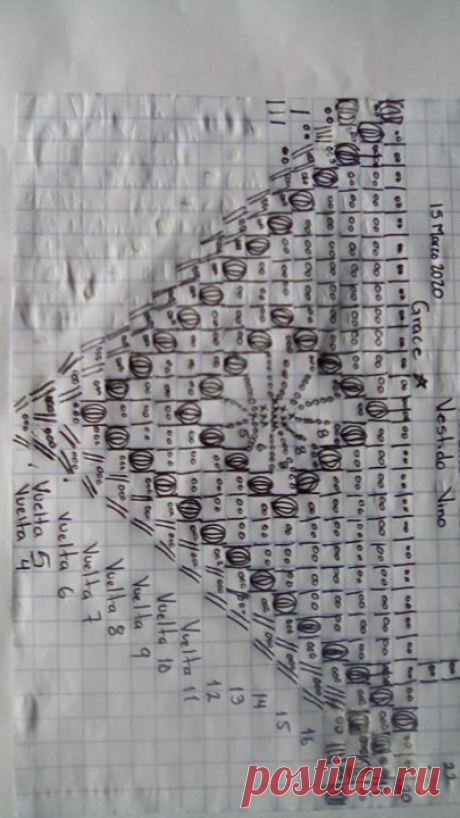 15 Marzo 2020
Grace
Vestido Vino
Vuelta 4
Vuelta 5
Vuelta 6
Vuelta 7
Vuelta 8
Vuelta 9
Vuelta 10
Vuelta 11
12
13
14
15
16
20
22
5
6
8
8
postila.ru